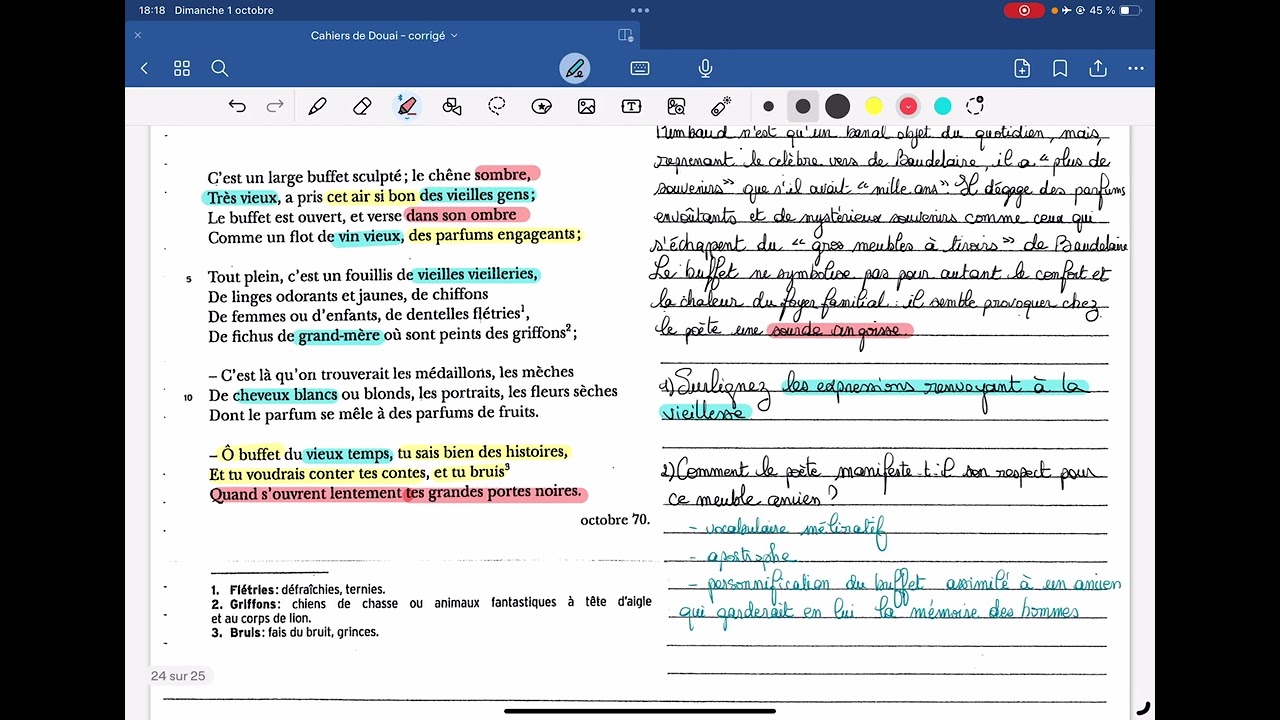 18:18 Dimanche 1 octobre
45 %
Cahiers de Douai – corrigé
C'est un large buffet sculpté ; le chêne sombre,
Très vieux, a pris cet air si bon des vieilles gens ;
Le buffet est ouvert, et verse dans son ombre
Comme un flot de vin vieux, des parfums engageants ;
5 Tout plein, c'est un fouillis de vieilles vieilleries,
De linges odorants et jaunes, de chiffons
De femmes ou d'enfants, de dentelles flétries1,
De fichus de grand-mère où sont peints des griffons2 ;
– C'est là qu'on trouverait les médaillons, les mèches
10 De cheveux blancs ou blonds, les portraits, les fleurs sèches
Dont le parfum se mêle à des parfums de fruits.
– Ô buffet du vieux temps, tu sais bien des histoires,
Et tu voudrais conter tes contes, et tu bruis3
Quand s'ouvrent lentement tes grandes portes noires.
octobre 70.
1. Flétries : défraîchies, ternies.
2. Griffons : chiens de chasse ou animaux fantastiques à tête d'aigle
et au corps de lion.
3. Bruis : fais du bruit, grinces.
24 sur 25
Rimbaud n'est qu'un banal objet du quotidien, mais,
reprenant le célèbre vers de Baudelaire, il a "plus de
souvenirs" que s'il avait "mille ans". Il dégage des parfums
envoûtants et de mystérieux souvenirs comme ceux qui
s'échapent du "gros meubles à tiroirs" de Baudelaire
Le buffet ne symbolise pas pour autant le confort et
la chaleur du foyer familial : il semble provoquer chez
le poète une sourde angoisse.
1) Surlignez les expressions renvoyant à la
vieillesse
2) Comment le poète manifeste-t-il son respect pour
ce meuble ancien ?
- vocabulaire mélioratif
- apostrophe
- personnification du buffet assimilé à un ancien
qui garderait en lui la mémoire des hommes